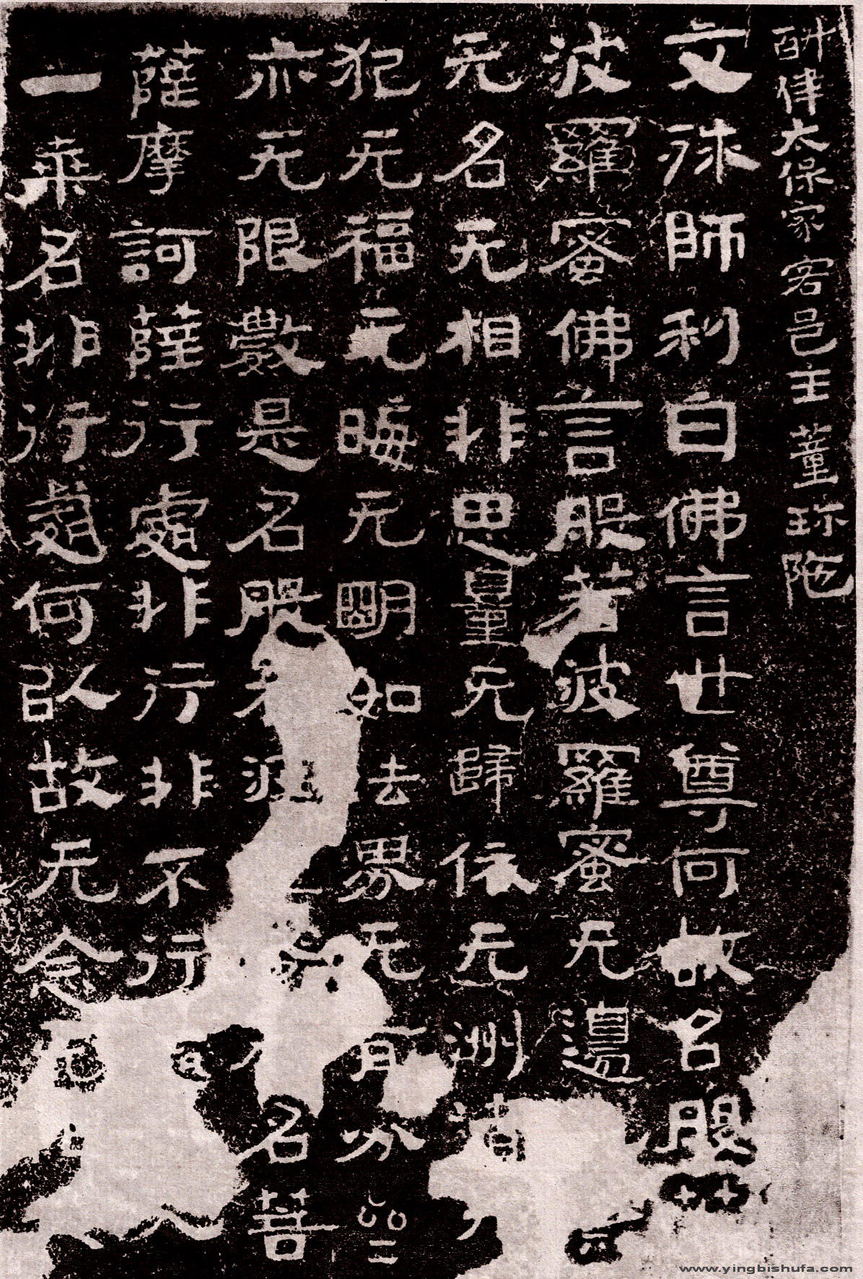 斛律太保家客邑主董珍陀
文殊師利白佛言世尊何故名般
波羅蜜佛言般若波羅蜜无邊
无名无相非思量无歸依无洲渚
犯无福无晦无明如法界无有分
亦无限數是名般若波名菩
薩摩訶薩行處非行非不行
一乘名非行處何以故无念
www.yingbishufa.com